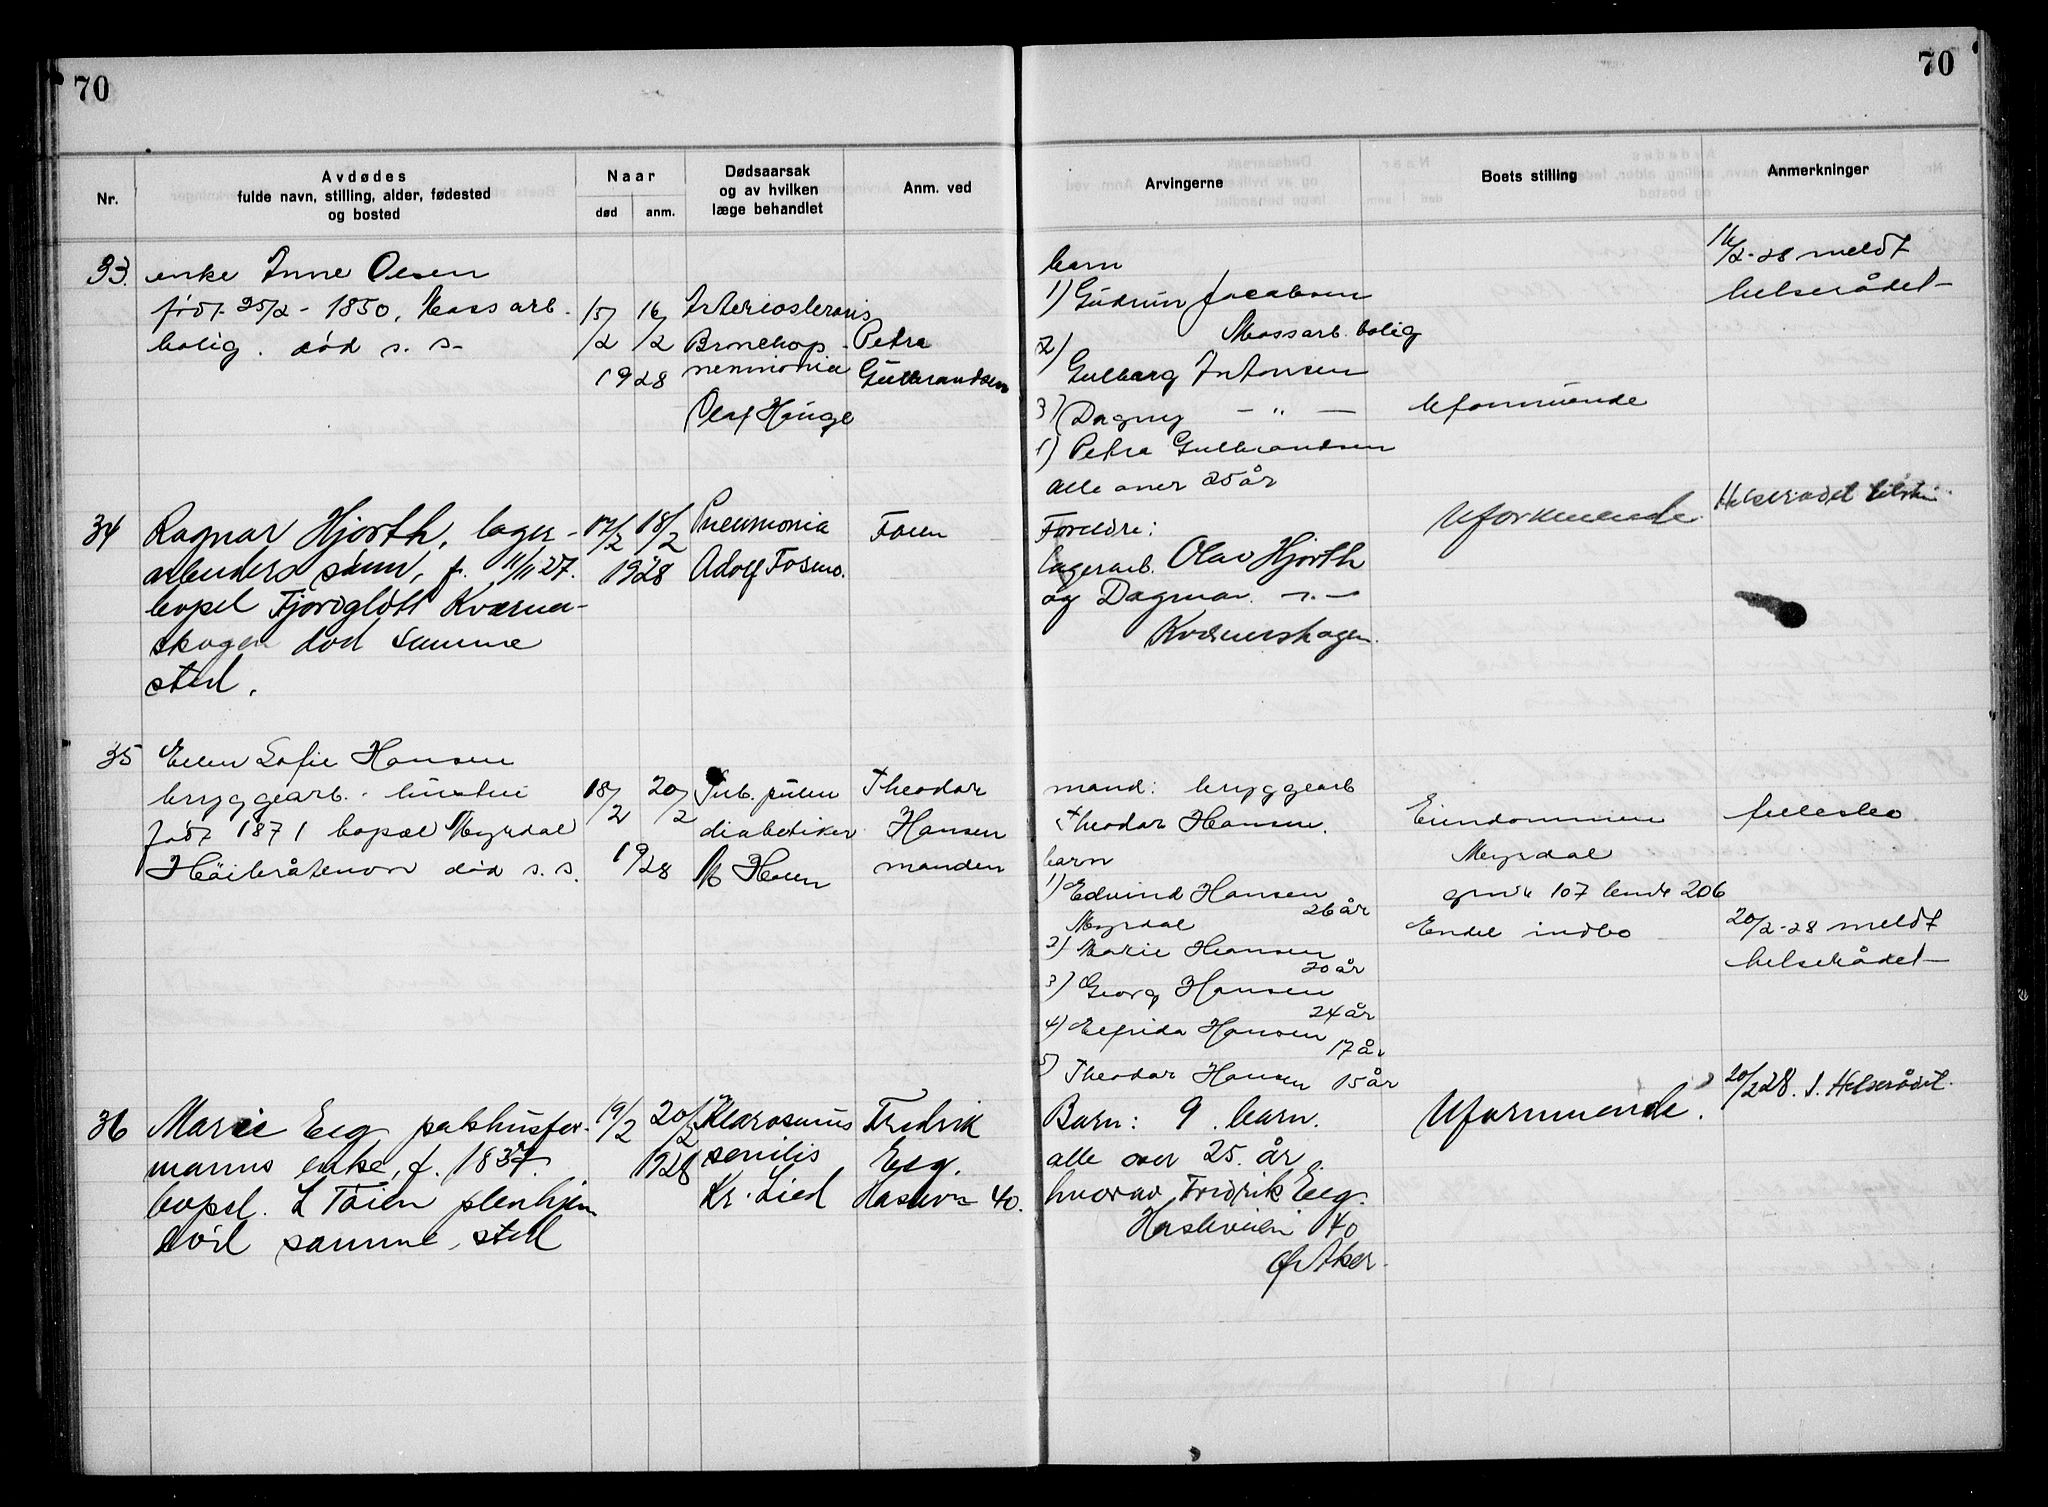 70
70
Nr.
Avdødes
fulde navn, stilling, alder, fødested
og bosted
Naar
død
anm.
Dødsaarsak
og av hvilken
læge behandlet
Anm. ved
Arvingerne
Boets stilling
Anmerkninger
33. enke Anne Olsen
født 25/2 - 1850, Moss arb.
bolig. død s. s.
15/2 16/2
1928
Arteriosclerosis
Bronchop-
neumonia
Olaf Hauge
Petra
Gulbrandsen
barn
1) Gudrun Jacobsen
Mossarb. bolig
2)
Gulborg Antonsen
3) Dagny — " —
Petra Gulbrandsen
alle over 25 år
Uformuende
16/2-28 meldt
helserådet
34 Ragnar Hjorth, lager-
arbeiders sønn, f. 11/11 27.
bopel Fjordglött Kværner-
skogen død samme
sted.
17/2 18/2
1928
Pneumonia
Adolf
Faren
Foreldre:
lagerarb. Olav Hjorth
og Dagmar
Kværnerskogen.
Uformuende
Helserådet
35 Ellen Sofie Hansen
bryggearb. hustru
født 1871 bopæl Myrdal
Høibråtenvn død s. s.
18/2 20/2
1928
Tub. pulm
diabetiker
Theodor
Hansen
manden
mand: bryggearb
Theodor Hansen.
barn
1) Edvind Hansen
26 år
Myrdal
2) Marie Hansen
20 år
3) Georg Hansen
24 år
4) Elfrida Hansen
17 år
5) Theodor Hansen 15 år
Eiendommen
Myrdal
gnr 107 bnr 206
Endel indbo
fellesbo
20/2-28 meldt
helserådet
36 Marie Eeg pakhusfor-
manns enke, f. 1837.
bopel. L Tøien pleiehjem
død samme sted
19/2 20/2
1928
Marasmus
senilis
Kr. Lied
Fredrik
Eeg.
Haslevn 40.
Barn: 9 barn.
alle over 25 år
hvorav Fredrik Eeg.
Hasleveien 40
Ø. Aker.
Uformuende.
20/2 28. s. Helserådet.